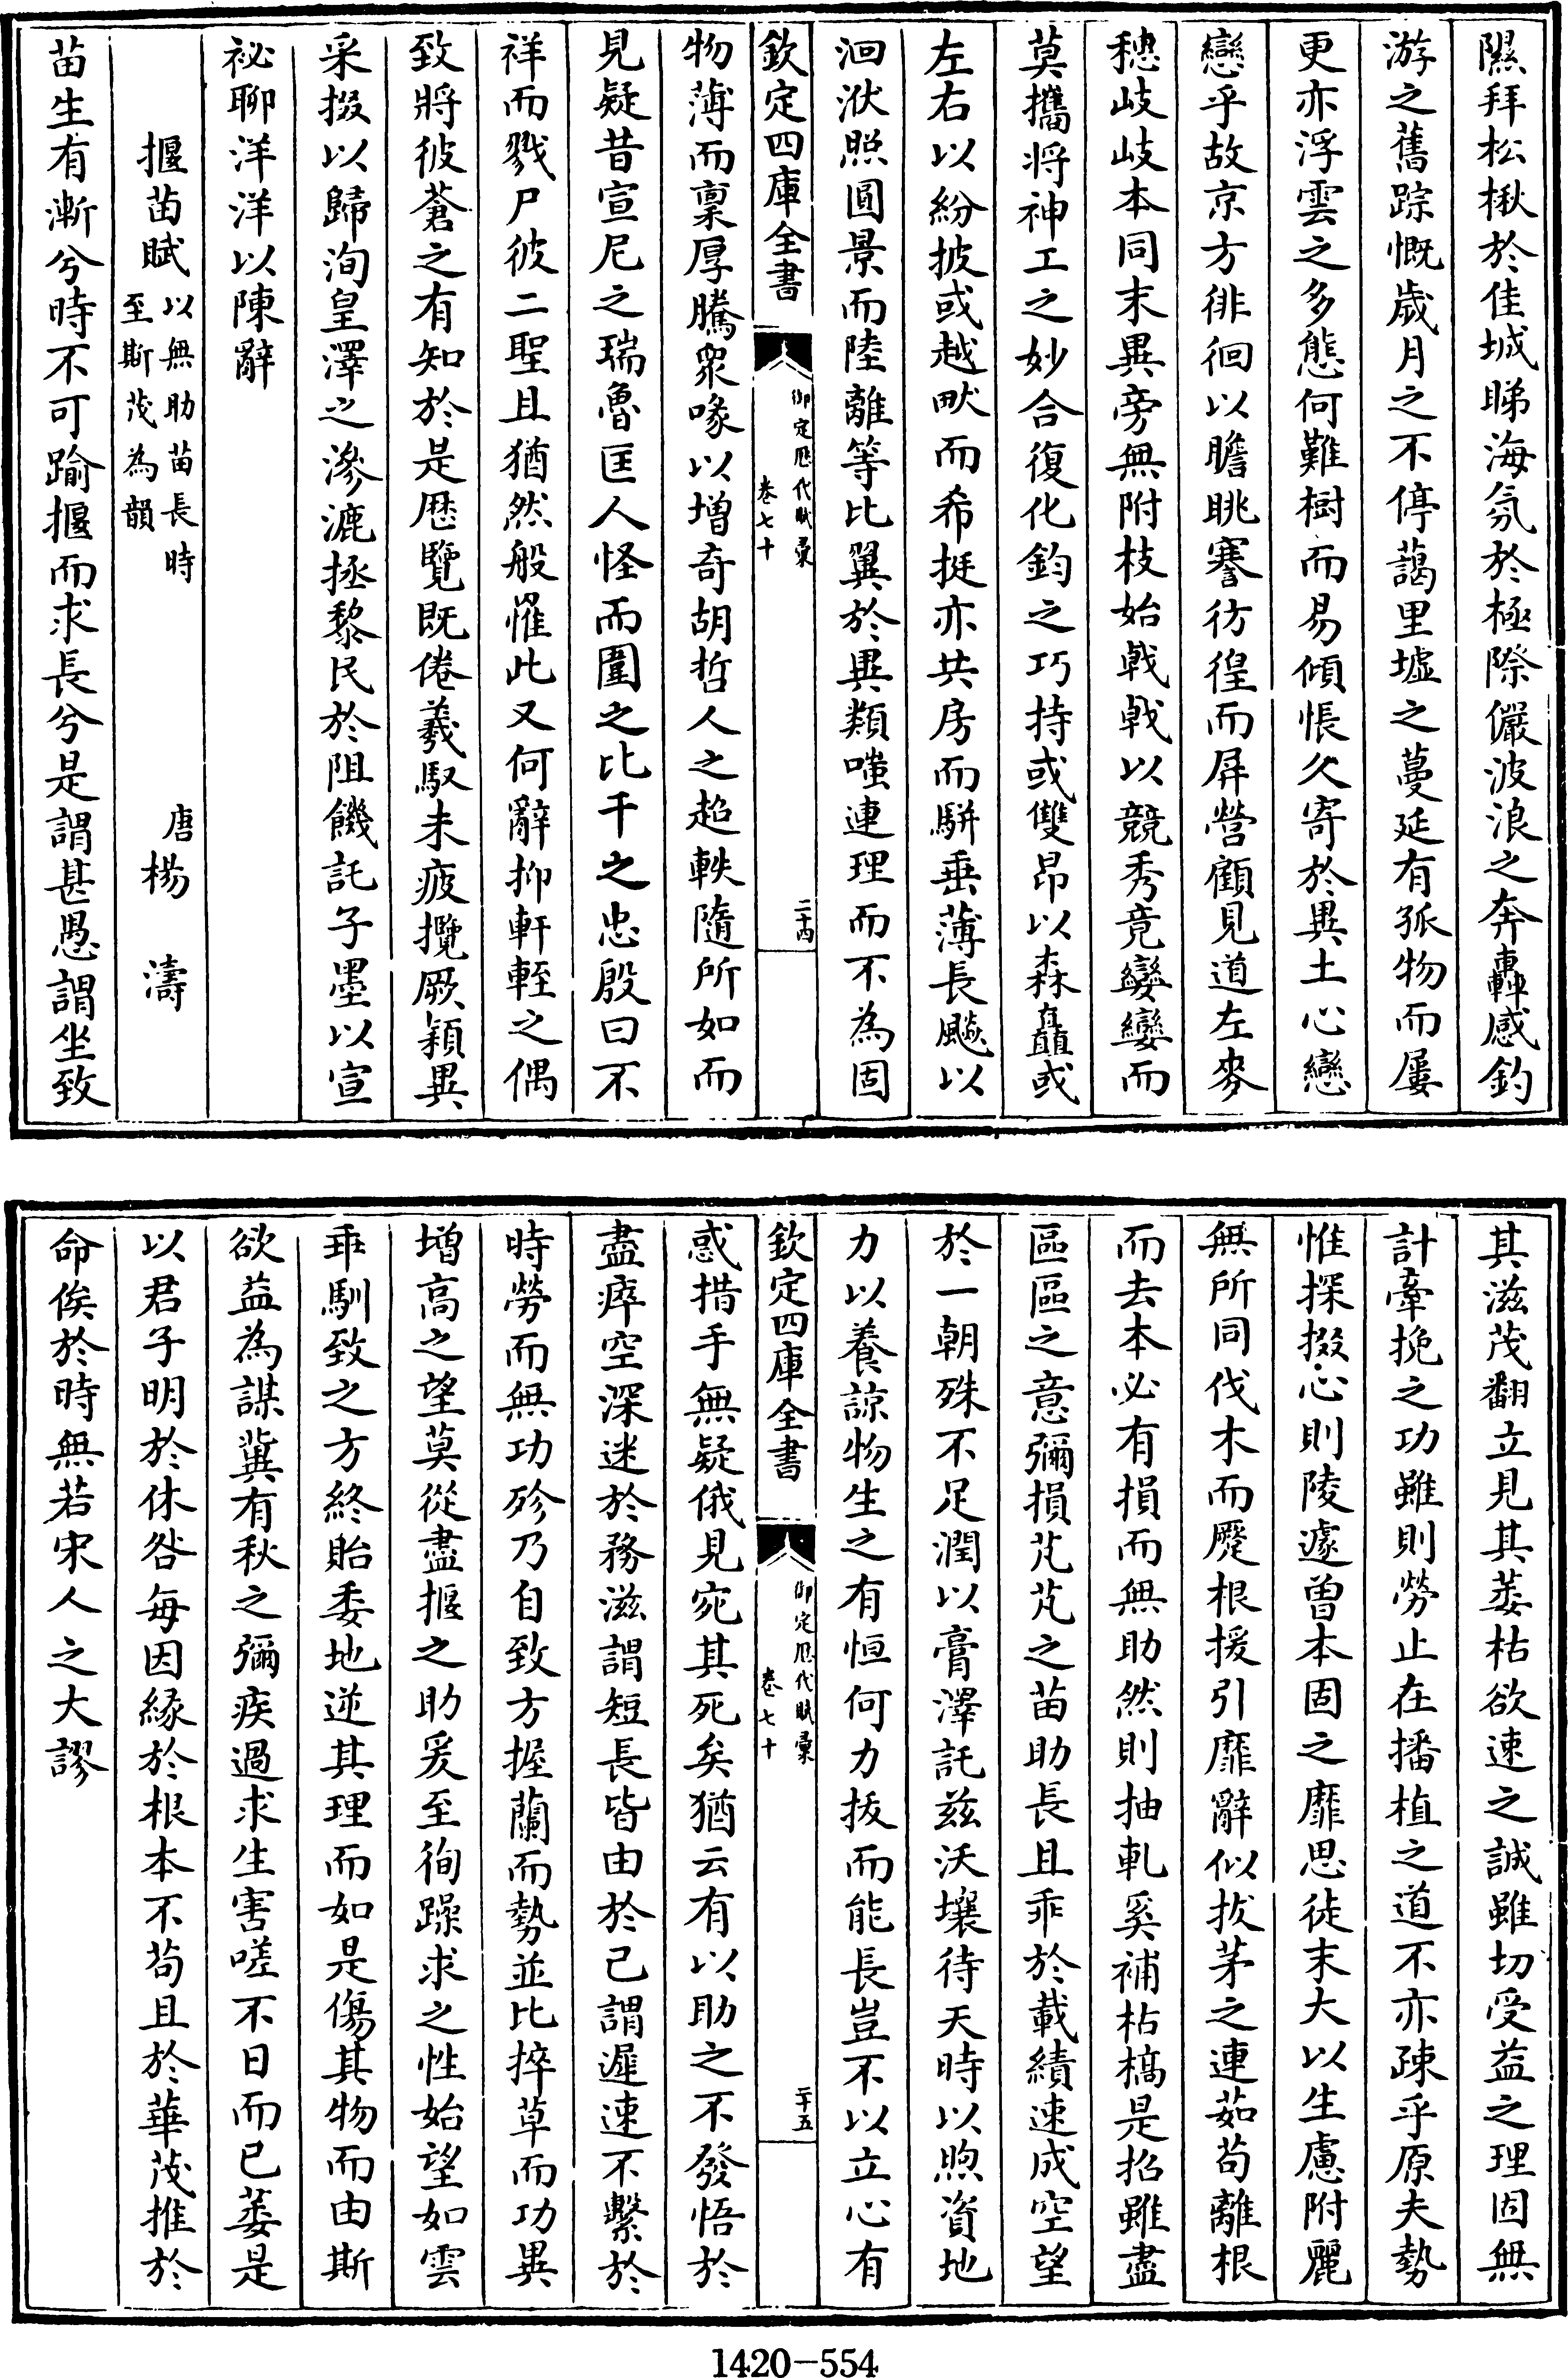 隰拜松楸於佳城睇海氛於極際儼波浪之奔轟感釣
游之舊踪慨歲月之不停藹里墟之蔓延有孤物而屢
更亦浮雲之多態何難樹而易傾悵久寄於異土心戀
戀乎故京方徘徊以瞻眺謇彷徨而屏營顧見道左麥
穗岐岐本同末異旁無附枝始戢戢以競秀竟孌孌而
莫攜將神工之妙合復化鈞之巧持或雙昂以森矗或
左右以紛披或越畎而希挺亦共房而駢垂薄長飈以
洄洑照圓景而陸離等比翼於異類嗤連理而不為固
欽定四庫全書
御定歷代賦彙
卷七十
二十四
物薄而稟厚騰衆喙以增奇胡哲人之超軼隨所如而
見疑昔宣尼之瑞魯匡人怪而圍之比干之忠殷曰不
祥而戮尸彼二聖且猶然般罹此又何辭抑軒輊之偶
致將彼蒼之有知於是歷覽既倦羲馭未疲攬厥穎異
采掇以歸洵皇澤之滲漉拯黎民於阻饑託子墨以宣
祕聊洋洋以陳辭
揠苗賦
以無助苗長時
至斯茂為韻
唐楊濤
苗生有漸兮時不可踰揠而求長兮是謂甚愚謂坐致
其滋茂翻立見其萎枯欲速之誠雖切受益之理固無
計牽挽之功雖則勞止在播植之道不亦疎乎原夫勢
惟探掇心則陵遽曾本固之靡思徒末大以生慮附麗
無所同伐木而壓根援引靡辭似拔茅之連茹苟離根
而去本必有損而無助然則抽軋奚補枯槁是招雖盡
區區之意彌損芃芃之苗助長且乖於載績速成空望
於一朝殊不足潤以膏澤託兹沃壤待天時以煦資地
力以養諒物生之有恒何力拔而能長豈不以立心有
欽定四庫全書
御定歷代賦彙
卷七十
二十五
惑措手無疑俄見宛其死矣猶云有以助之不發悟於
盡瘁空深迷於務滋謂短長皆由於己謂遲速不繫於
時勞而無功殄乃自致方握蘭而勢並比捽草而功異
增高之望莫從盡揠之助爰至徇躁求之性始望如雲
乖馴致之方終貽委地逆其理而如是傷其物而由斯
欲益為謀冀有秋之彌疾過求生害嗟不日而已萎是
以君子明於休咎每因緣於根本不苟且於華茂推於
命俟於時無若宋人之大謬
1420-554